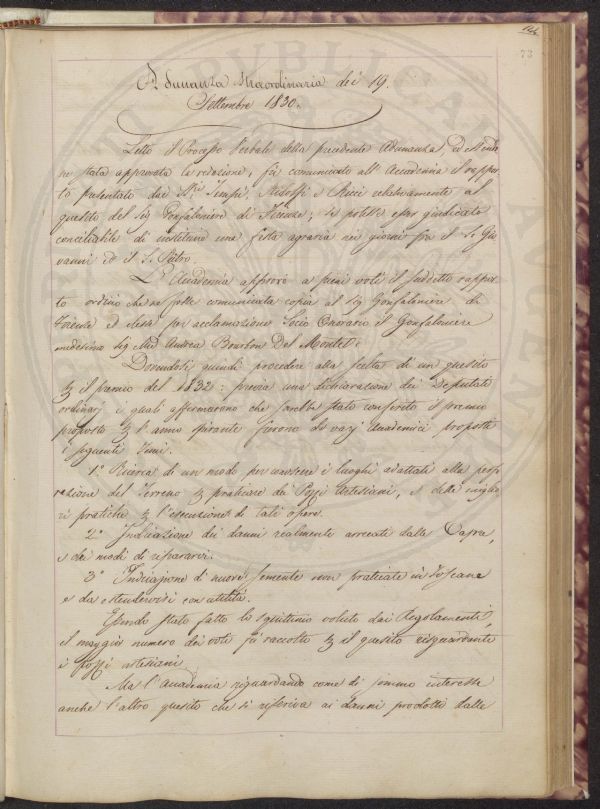 73
Adunanza straordinaria dei 19.
Settembre 1830.
Letto il Processo Verbale della precedente Adunanza, ed essendo
ne stata approvata la redazione, fù comunicato all'Accademia il rappor
to presentato dai Sig.ri Tempi, Ridolfi e Ricci relativamente al
quesito del Sig Gonfaloniere di Firenze; se potesse esser giudicato
conciliabile di instituire una festa agraria nei giorni fra il S. Gio
vanni ed il S. Pietro.
L'Accademia approvò a pieni voti il suddetto rappor
to ordinò che ne fosse comunicata copia al Sig Gonfaloniere di
Firenze ed elesse per acclamazione Socio Onorario il Gonfaloniere
medesimo Sig Andrea Bourbon Del Monte.
Dovendosi quindi procedere alla scelta di un quesito
per il premio del 1832: previa una dichiarazione dei Deputati
ordinarj i quali affermarono che sarebbe stato conferito il premio
proposto per l'anno spirante furono da varj Accademici proposti
i seguenti Temi.
1.º Ricerca di un modo per conoscere i luoghi adattati alla perfo
razione del Terreno per praticare dei Pozzi Artesiani, e delle miglio
ri pratiche per l'esecuzione di tali opere.
2.º Indicazione dei danni realmente arrecati dalla Capra,
e dei modi di ripararvi.
3.º Indicazione di nuove semente non praticate in Toscana
e da estendervisi con utilità.
Essendo stato fatto lo squittinio voluto dai Regolamenti,
il maggior numero dei voti fù raccolto per il quesito risguardante
i pozzi artesiani.
Ma l'Accademia riguardando come di sommo interesse
anche l'altro quesito che si riferiva ai danni prodotti dalle